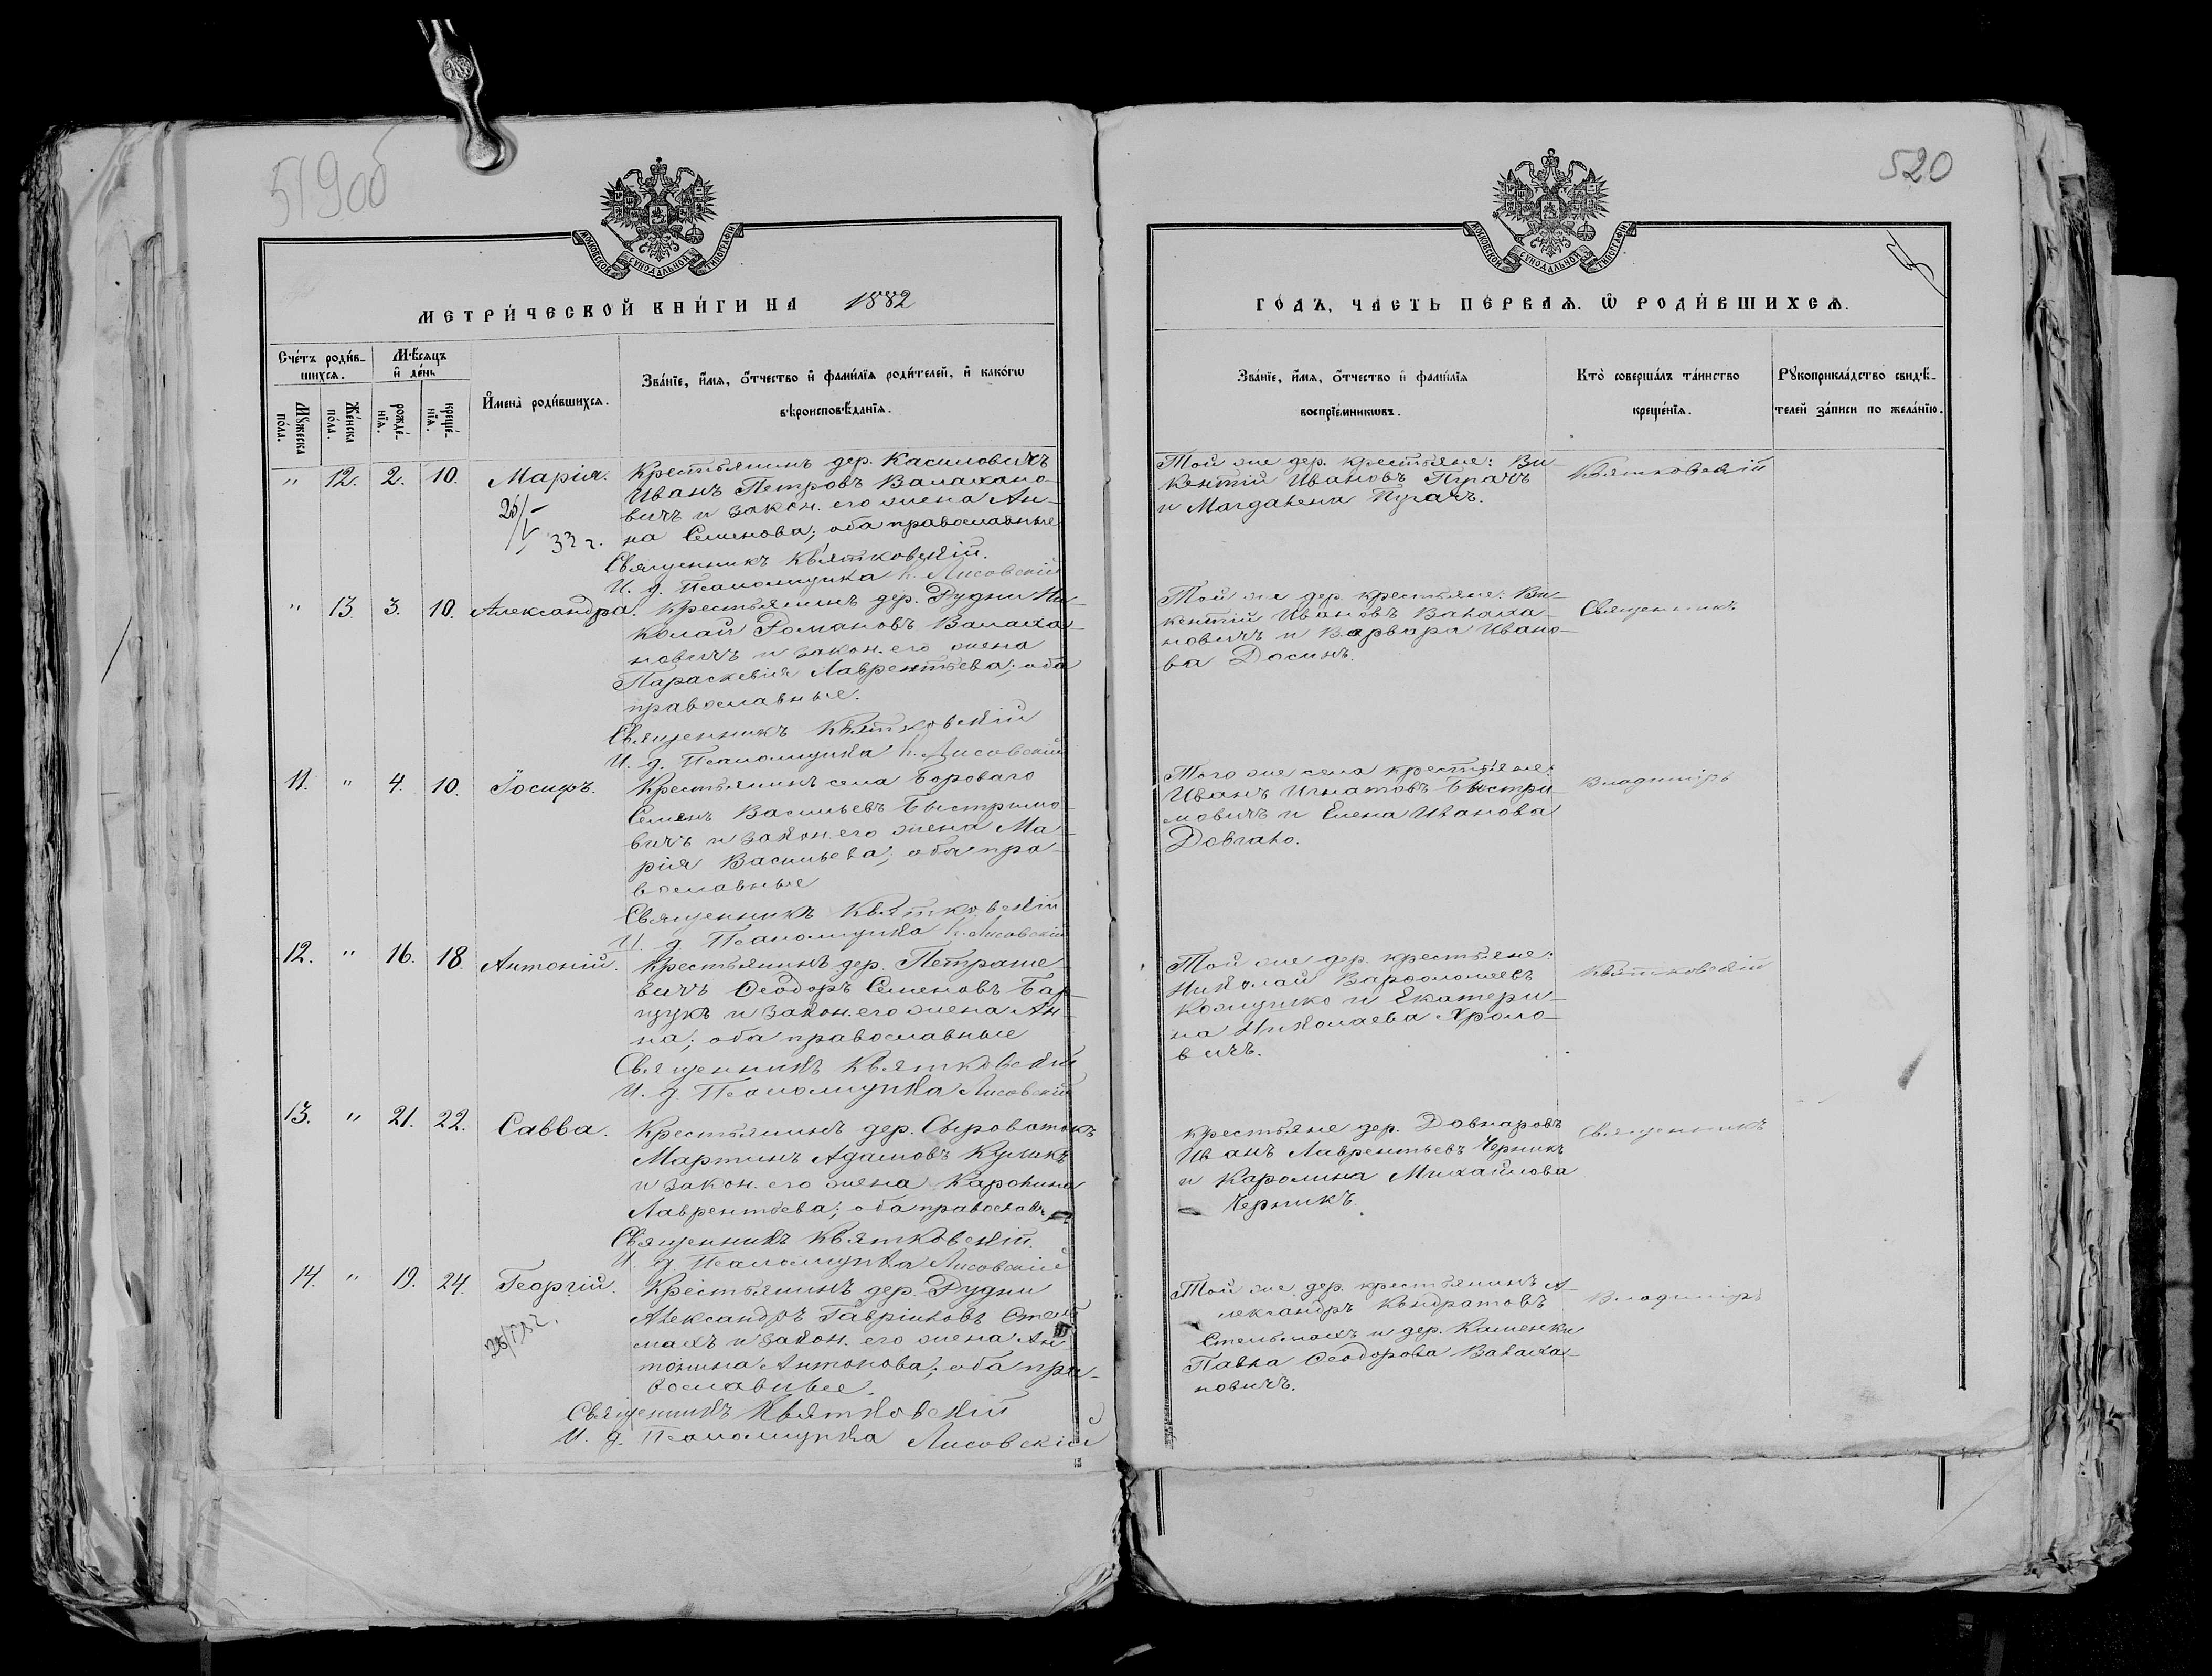 519 об
520
МОСКОВСКОЙ СѴНОДАЛЬНОЙ ТИПОГРАФІИ
МЕТРИ́ЧЕСКОЙ КНИ́ГИ НА 1882
Сче́тъ роди́в-
шихсѧ.
Мѣ́сѧцъ
и҆ де́нь
Мꙋ́жеска
по́ла.
Же́нска
по́ла.
рожде́-
нїѧ.
креще́-
нїѧ.
И҆мена̀ роди́вшихсѧ.
Зва́нїе, и҆́мѧ, ѻ҆́тчество и҆ фами́лїѧ роди́телей, и҆ како́гѡ
вѣроисповѣ́данїѧ.
" 12. 2. 10. Марія. Крестьянинъ дер. Касиловичъ
Иванъ Петровъ Валахано-
вичъ и закон. его жена Ан-
на Семенова; оба православные
33 г.
Священникъ Квятковскій.
И. д. Псаломщика Лисовскій
" 13. 3. 10. Александра. Крестьянинъ дер. Рудни Ни-
колай Романовъ Валаха-
новичъ и закон. его жена
Параскевія Лаврентьева; оба
православные.
Священникъ Квятковскій
И. д. Псаломщика Лисовскій
11. " 4. 10. Іосифъ. Крестьянинъ села Бороваго
Семенъ Васильевъ Быстримо-
вичъ и закон. его жена Ма-
рія Васильева; оба пра-
вославные
Священникъ Квятковскій
И. д. Псаломщика Лисовскій
12. " 16. 18. Антоній. Крестьянинъ дер. Петраше-
вичъ Ѳеодоръ Семеновъ Бар-
щукъ и закон. его жена Ан-
на; оба православные
Священникъ Квятковскій
И. д. Псаломщика Лисовскій
13. " 21. 22. Савва. Крестьянинъ дер. Сыроватокъ
Мартинъ Адамовъ Куликъ
и закон. его жена Каролина
Лаврентьева; оба православн
Священникъ Квятковскій.
И. д. Псаломщика Лисовскій
14. " 19. 24. Георгій. Крестьянинъ дер. Рудни
Александръ Гавріиловъ Стель
махъ и закон. его жена Ан
тонина Антонова; оба пра-
вославные.
Священникъ Квятковскій
И. д. Псаломщика Лисовскій
МОСКОВСКОЙ СѴНОДАЛЬНОЙ ТИПОГРАФІИ
ГО́ДЪ, ЧА́СТЬ ПЕ́РВАѦ. Ѽ РОДИ́ВШИХСѦ.
Зва́нїе, и҆́мѧ, ѻ҆́тчество и҆ фами́лїѧ
воспрїе́мникѡвъ.
Кто̀ соверша́лъ та́инство
креще́нїѧ.
Рꙋкоприкла́дство свидѣ́-
телей за́писи по жела́нїю.
Той же дер. крестьяне: Ви-
кентій Ивановъ Пугачъ
и Магдалена Пугачъ.
Квятковскій
Той же дер. крестьяне: Ви-
кентій Ивановъ Валаха-
новичъ и Варвара Ивано-
ва Досинъ.
Священникъ
Того же села крестьяне:
Иванъ Игнатовъ Быстри-
мовичъ и Елена Иванова
Довгало.
Владиміръ
Той же дер. крестьяне:
Николай Варѳоломеевъ
Кожушко и Екатери-
на Николаева Хромо-
вичъ.
Квятковскій
Крестьяне дер. Довнаровъ
Иванъ Лаврентьевъ Черникъ
и Каролина Михайлова
Черникъ.
Священникъ
Той же дер. крестьянинъ А-
лександръ Кондратовъ
Стельмахъ и дер. Каменки
Павла Ѳеодорова Валаха-
новичъ.
Владиміръ